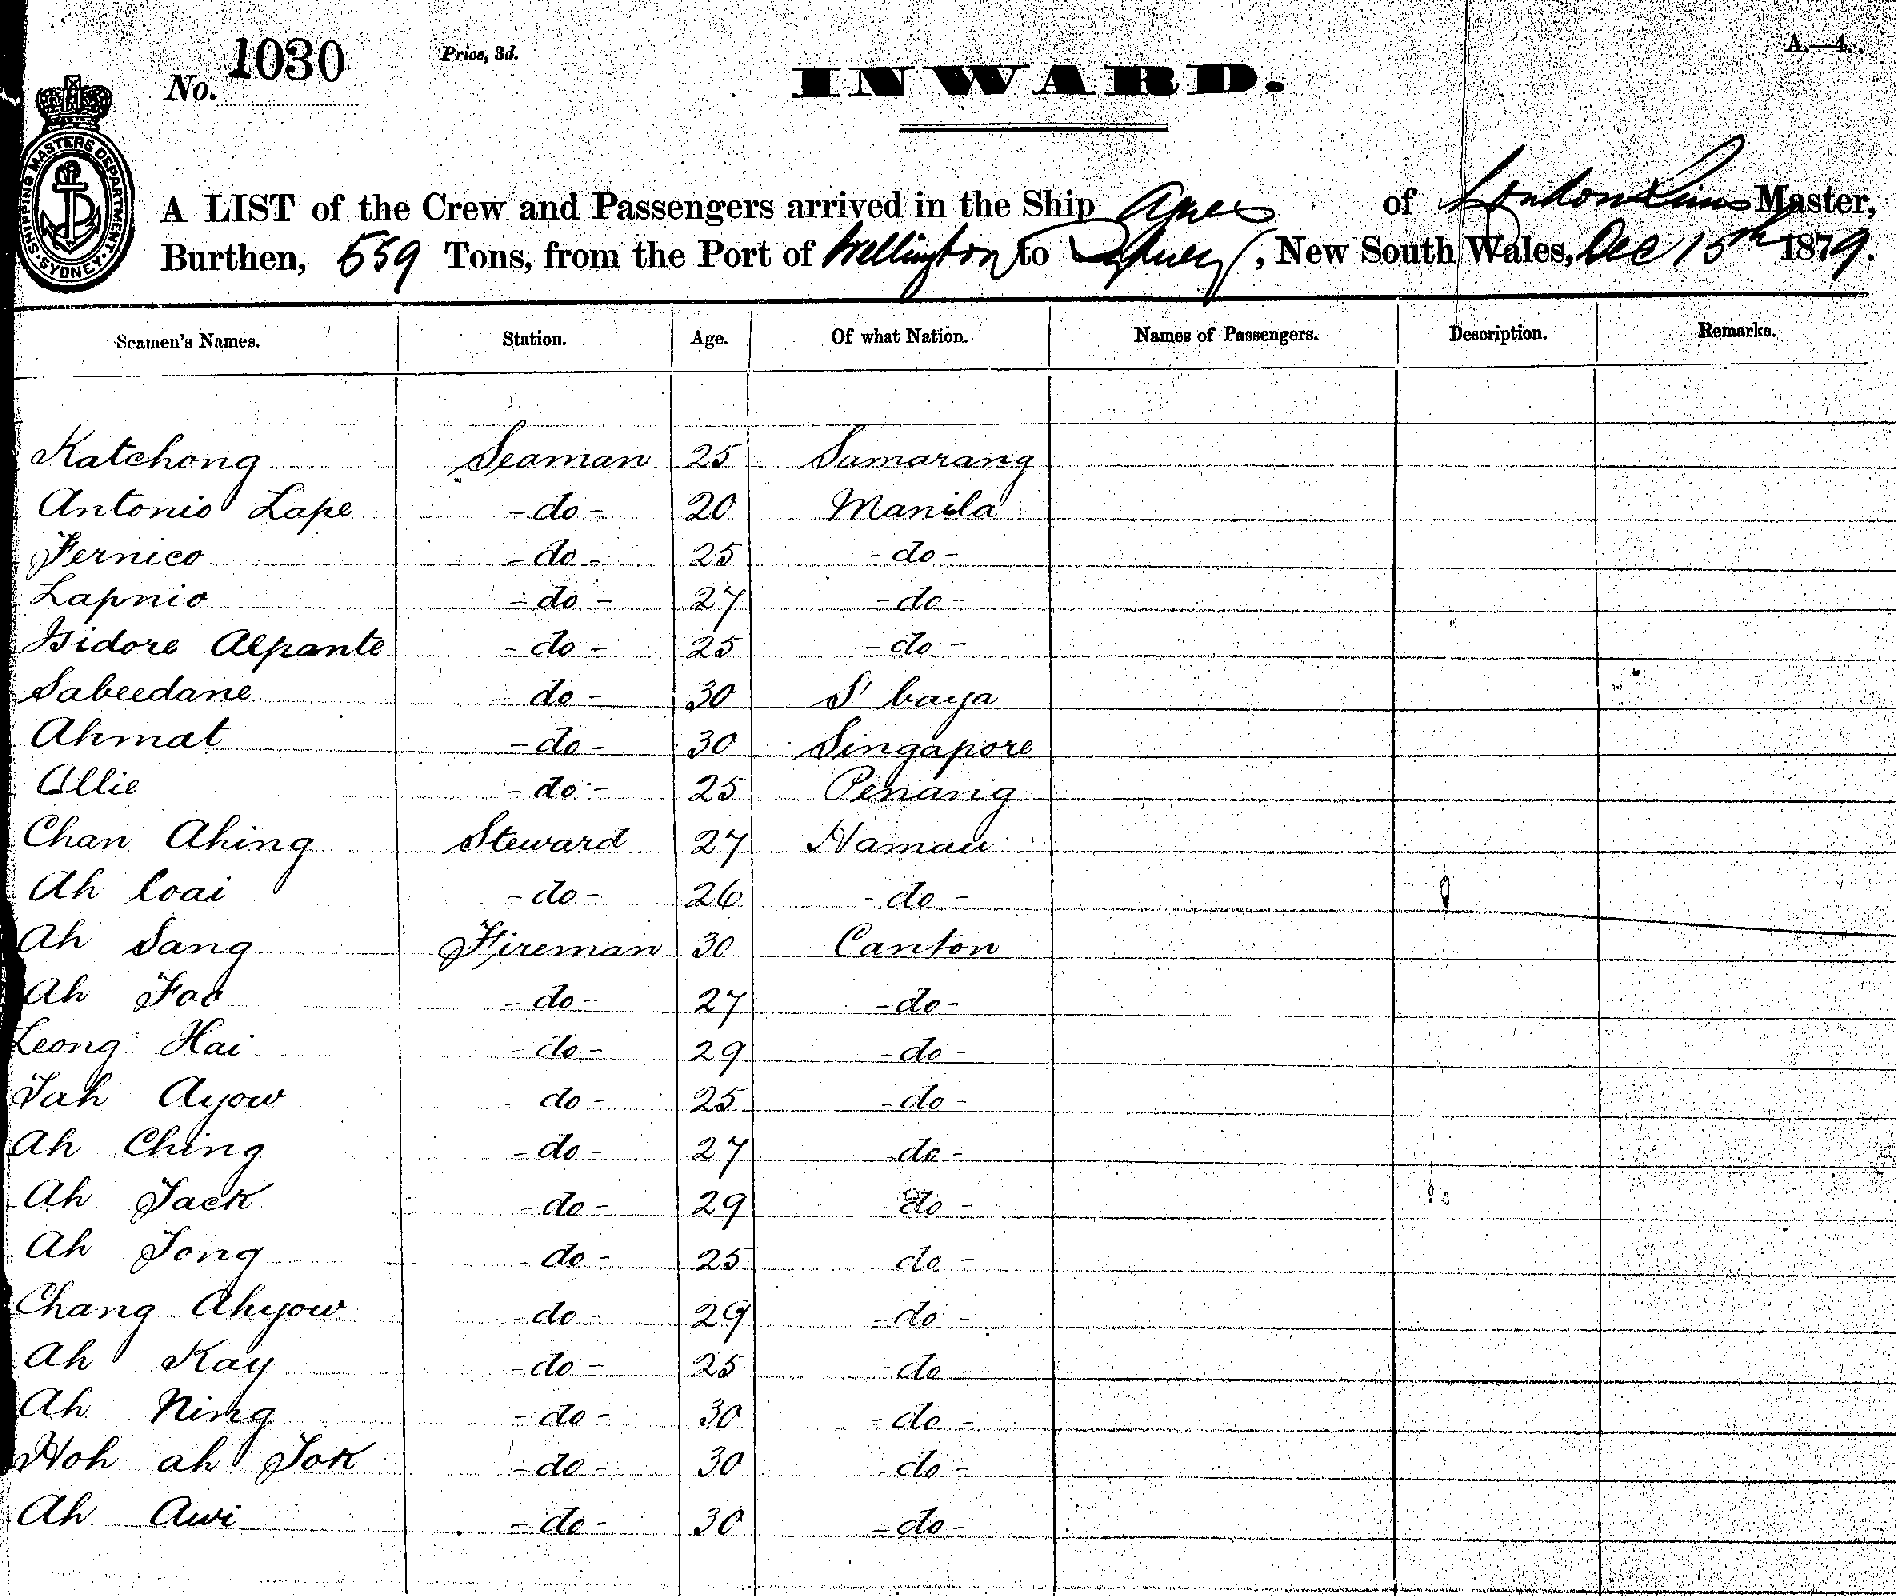 No. 1030 Price, 3d. A.—4.
INWARD.
SHIPPING MASTERS DEPARTMENT SYDNEY
A LIST of the Crew and Passengers arrived in the Ship of London Master,
Burthen, 559 Tons, from the Port of Wellington to Sydney, New South Wales, Dec 15th 1879.
Seamen's Names. Station. Age. Of what Nation. Names of Passengers. Description. Remarks.
Katchong Seaman 25 Samarang
Antonio Lape - do - 20 Manila
Fernico - do - 25 - do -
Lapnio - do - 27 - do -
Isidore Alpante - do - 25 - do -
Sabeedane do - 30 S' baya
Ahmat - do - 30 Singapore
Allie - do - 25 Penang
Chan Ahing Steward 27
Ah - do - 26 - do -
Ah Sang Fireman 30 Canton
Ah - do - 27 - do -
Leong Hai - do - 29 - do -
Ayow do - 25 - do -
Ah Ching - do - 27 do -
Ah Jack - do - 29 do -
Ah - do - 25 do -
Chang Ahyow - do - 29 - do -
Ah Kay - do - 25 - do
Ah Ning - do - 30 - do -
Hoh ah - do - 30 do -
Ah Awi - do - 30 - do -